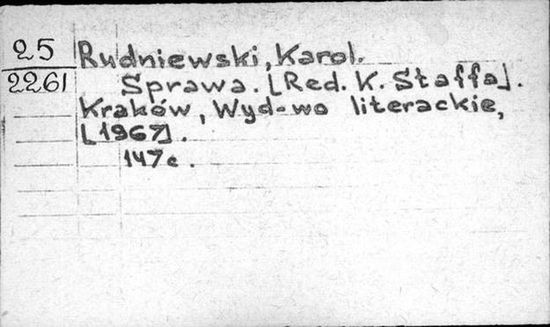 25
2261
Rudniewski, Karol.
Sprawa. [Red. K. Staffa].
Kraków, Wyd-wo literackie,
[1967].
147c.